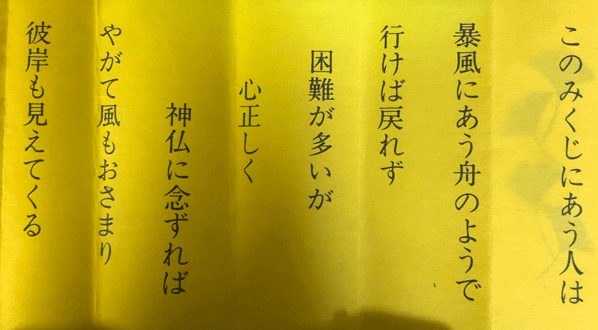 このみくじにあう人は
暴風にあう舟のようで
行けば戻れず
困難が多いが
心正しく
神仏に念ずれば
やがて風もおさまり
彼岸も見えてくる